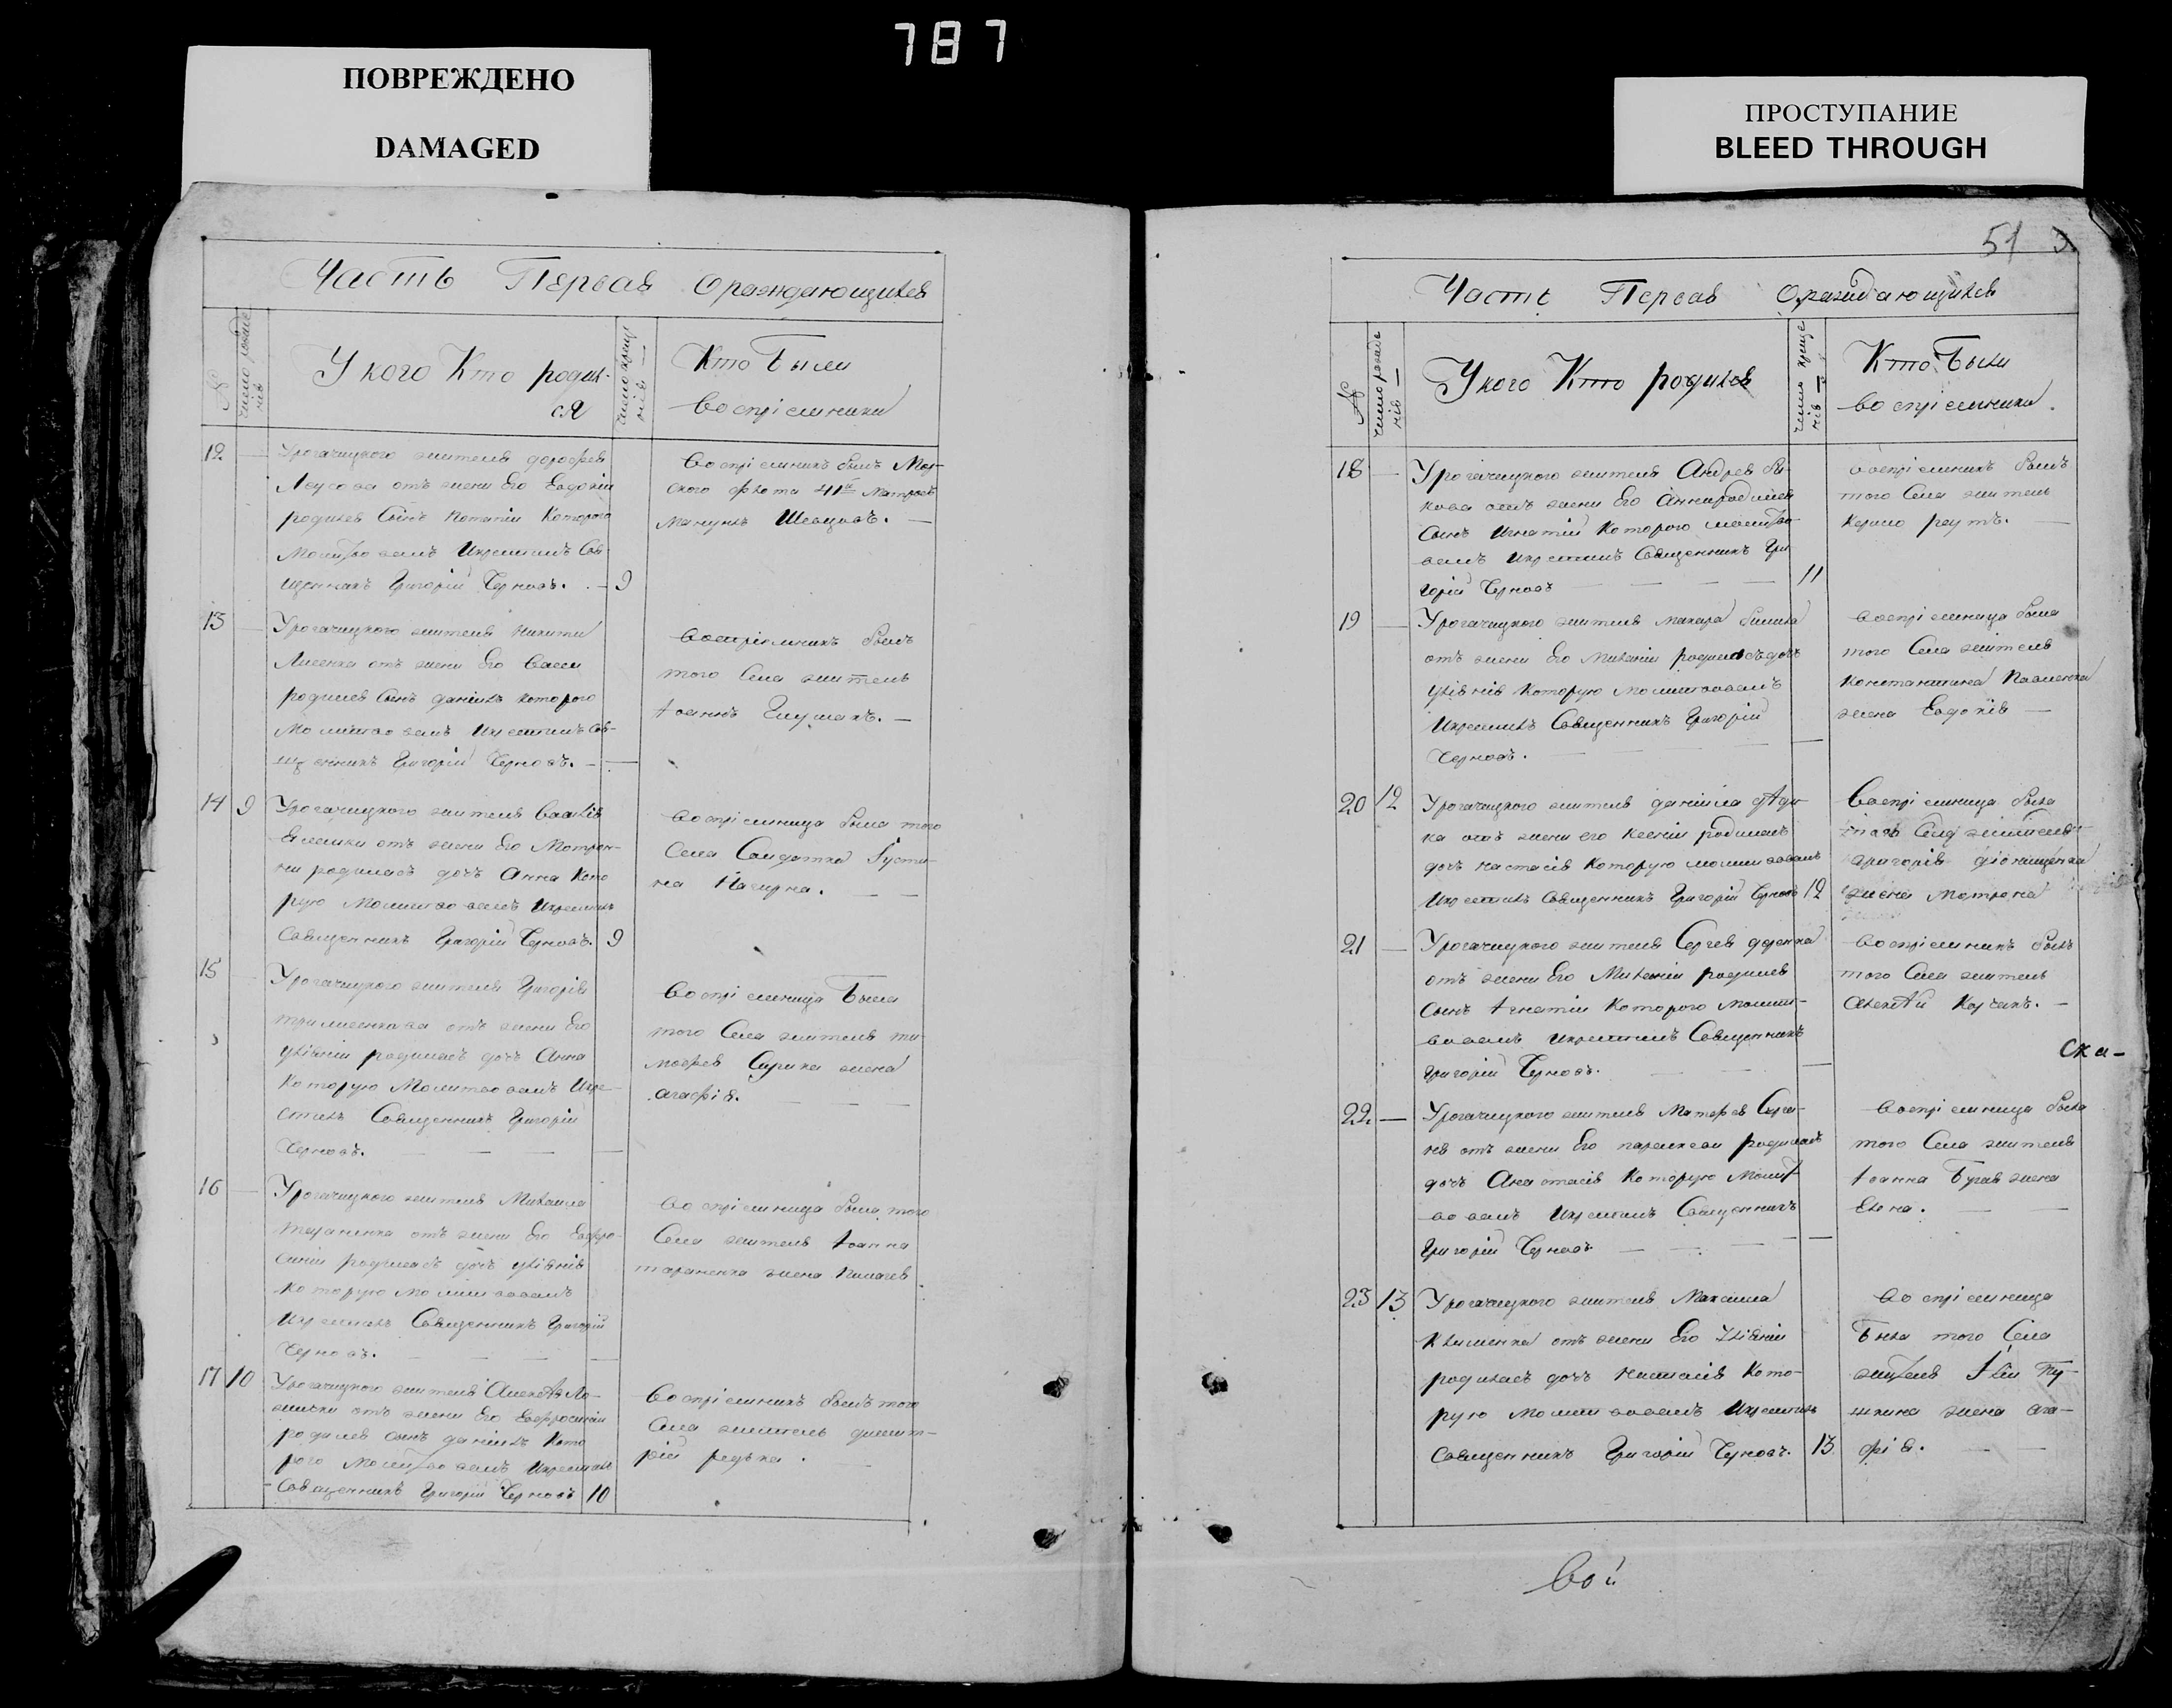 787
ПОВРЕЖДЕНО
DAMAGED
ПРОСТУПАНИЕ
BLEED THROUGH
Часть Первая ораждающихся
№
число рожде
нія
У кого Кто родил-
ся
число креще
нія
Кто Были
воспріемники
12
Урогачицкого жителя дорофея
Леусова отъ жены Его Евдокіи
родился Сынъ Потапій Которого
Молитвовалъ Икрестилъ Свя-
щенникъ Григорій Черновъ. — 9
Воспріемникъ былъ Мор-
ского флота 41го
Шевцовъ. —
13
Урогачицкого жителя Никиты
Лисенка отъ жены Его
родился Сынъ даніилъ которого
Молитвовалъ Икрестилъ Свя-
щенникъ Григорій Черновъ. —
Воспріемникъ былъ
того Села житель
Іоаннъ Глушакъ. —
14 9
Урогачицкого жителя Василія
отъ жены Его Мотрон-
ни родилась дочь Анна Кото
рую Молитвовалъ Икрестилъ
Священникъ Григорій Черновъ. 9
Воспріемница была того
Села Салдатка Густи-
на
15
Урогачицкого жителя Григорія
отъ жены Его
Уліяніи родилась дочь Анна
Которую Молитвовалъ Икре-
стилъ Священникъ Григорій
Черновъ. —
Воспріемница Была
того Села жителя ти-
мофея жена
агафія.
16
Урогачицкого жителя Михаила
тараненка отъ жены Его Евфро-
синіи родилась дочь уліянія
Которую Молитвовалъ
Икрестилъ Священникъ Григорій
Черновъ. —
Воспріемница была того
Села жителя Іоанна
тараненка жена Пелагея
17 10
Урогачицкого жителя Алексѣя Ло-
отъ жены Его Евфросиніи
родился сынъ даніилъ Кото
рого Молитвовалъ Икрестилъ
Священникъ Григорій Черновъ 10
Воспріемникъ былъ того
Села житель димит-
рій редька.
51
Часть Первая Ораждающихся
№
число рожде
нія —
У кого Кто родился
число креще
нія —
Кто Были
воспріемники.
18
Урогачицкого жителя Андрея Бы-
кова отъ жены Его Анны родился
Сынъ Игнатій Которого молитво-
валъ Икрестилъ Священникъ Гри
горій Черновъ — 11
Воспріемникъ былъ
того Села житель
реутъ.
19
Урогачицкого жителя макара
отъ жены Его Меланіи родилась дочь
Уліянія Которую молитвовалъ
Икрестилъ Священникъ Григорій
Черновъ. —
Воспріемница была
того Села жителя
Константина Павленка
жена Евдокія —
20 12
Урогачицкого жителя даніила
отъ жены его Ксеніи родилась
дочь настасія Которую молитвовалъ
Икрестилъ Священникъ Григорій Черновъ 12
Воспріемница была
того Села жителя
Григорія діонищенка
жена Мотрона
21
Урогачицкого жителя Сергея
отъ жены Его Меланіи родился
Сынъ Игнатій Которого молит-
вовалъ Икрестилъ Священникъ
Григорій Черновъ. —
Воспріемникъ былъ
того Села житель
Алексѣй —
Ска-
22. —
Урогачицкого жителя Матфея
отъ жены Его параскеви родилась
дочь Анастасія Которую Молит
вовалъ Икрестилъ Священникъ
Григорій Черновъ. —
Воспріемница была
того Села жителя
Іоанна Бугая жена
Елена.
23 13
Урогачицкого жителя Максима
Клименка отъ жены Его Уліяніи
родилась дочь Наталія Кото-
рую Молитвовалъ Икрестилъ
Священникъ Григорій Черновъ. 13
Воспріемница
Была того Села
жителя Іліи
жена ага-
фія.